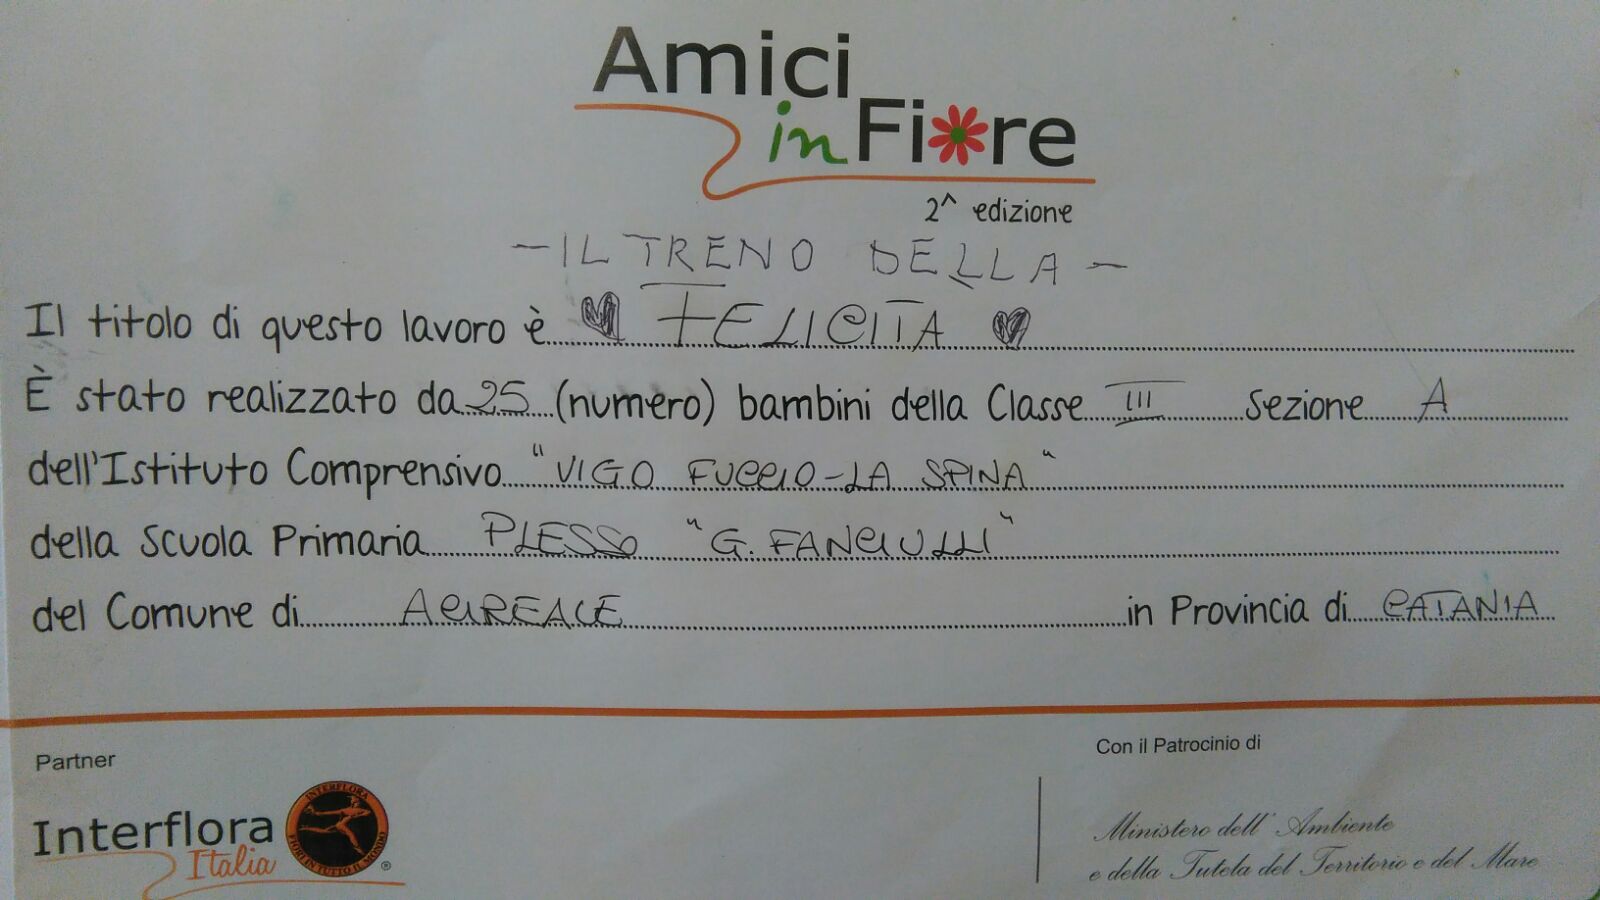 Amici
in Fiore
2^ edizione
- IL TRENO DELLA -
Il titolo di questo lavoro è FELICITA
È stato realizzato da 25 (numero) bambini della Classe III Sezione A
dell'Istituto Comprensivo "VIGO FUCCIO-LA SPINA"
della Scuola Primaria PLESSO "G. FANCIULLI"
del Comune di ACIREALE in Provincia di CATANIA
Partner
Con il Patrocinio di
Interflora
Italia
INTERFLORA
FIORI IN TUTTO IL MONDO
®
Ministero dell'Ambiente
e della Tutela del Territorio e del Mare